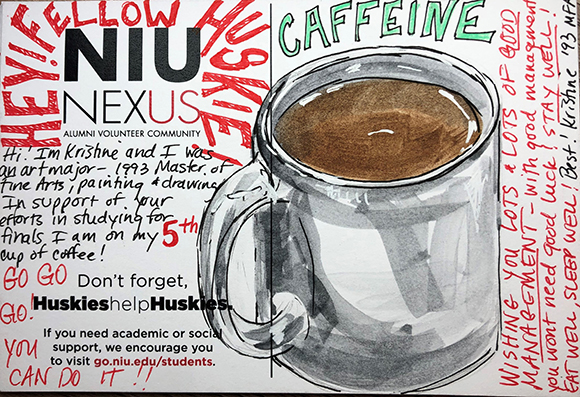 HEY! FELLOW HUSKIE!
NIU
NEXUS
ALUMNI VOLUNTEER COMMUNITY
Hi! Im Kristine and I was
an art major - 1993 Master of
Fine Arts; painting & drawing
In support of your
efforts in studying for
finals I am on my 5th
cup of coffee!
GO GO
GO!
Don't forget,
HuskieshelpHuskies.
If you need academic or social
support, we encourage you
to visit go.niu.edu/students.
YOU
CAN DO IT!!
CAFFEINE
WISHING YOU LOTS & LOTS OF GOOD
MANAGEMENT - with good management
you wont need good luck! STAY WELL!
EAT WELL SLEEP WELL! Best! Kristine '93 MFA